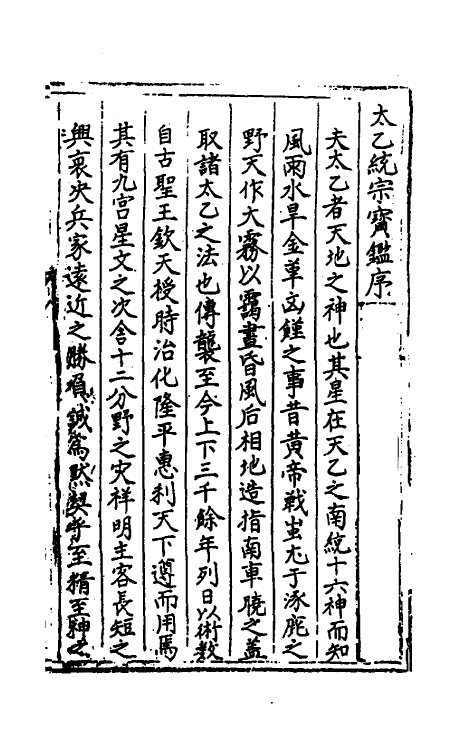 太乙統宗寶鑑序
夫太乙者天地之神也其星在天乙之南統十六神而知
風雨水旱金革凶饉之事昔黃帝戰蚩尤于涿鹿之
野天作大霧以靄晝昏風后相地造指南車曉之蓋
取諸太乙之法也傳襲至今上下三千餘年列日以術教
自古聖王欽天授時治化隆平惠利天下遵而用焉
其有九宮星文之次舍十二分野之灾祥明主客長短之
興衰决兵家遠近之勝負鍼篤默契乎至精至神之